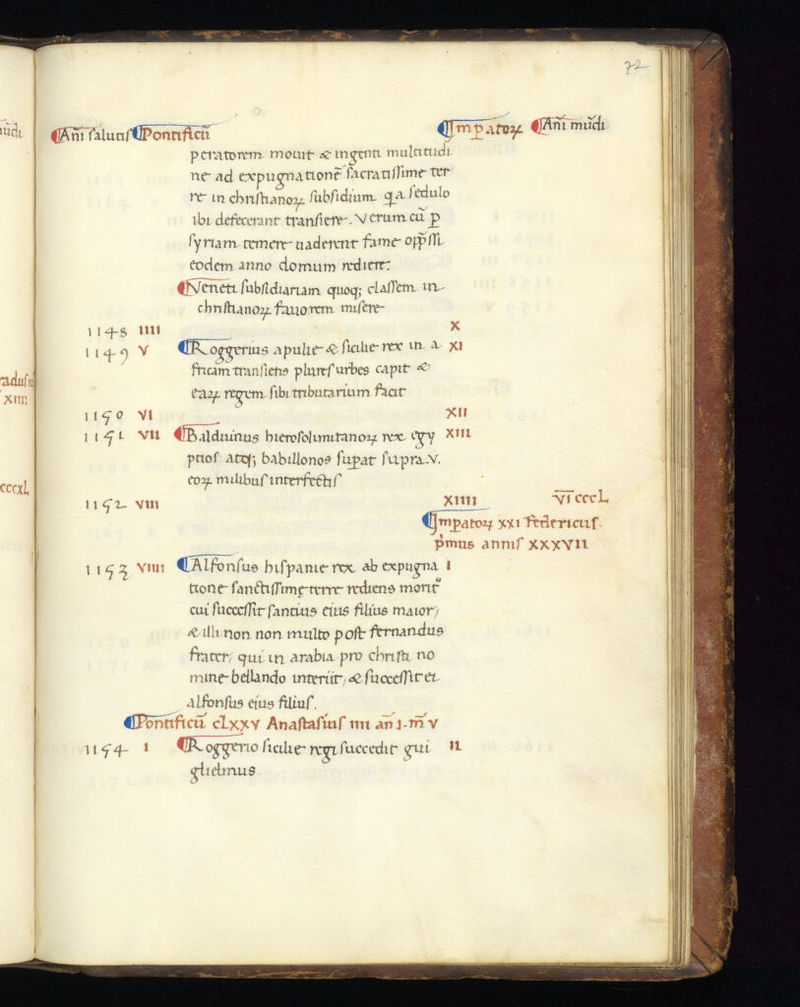 72
Añi salutis Pontificũ Impatoꝝ Añi mũdi
peratorem mouit & ingenti multitudi
ne ad expugnationẽ sacratissime ter
re in christianoꝝ subsidium qa sedulo
ibi defecerant transiere. Verum cũ p
syriam temere uaderent fame opp̃ssi
eodem anno domum rediere:
Veneti subsidiariam quoq; classem in
christianoꝝ fauorem misere
1148 IIII X
1149 V Roggerius apulie & sicilie rex in a XI
fricam transiens plures urbes capit &
eaꝝ regem sibi tributarium facit
1150 VI XII
1151 VII Balduinus hierosolimitanoꝝ rex egy XIII
ptios atq; babillonos supat supra .v.
eoꝝ milibus interfectis
1152 VIII XIIII VI cccL
Impatoꝝ xxi Federicus
pmus annis XXXVII
1153 VIIII Alfonsus hispanie rex ab expugna I
tione sanctissime terre rediens morit
cui successit santius eius filius maior,
& illi non non multo post fernandus
frater, qui in arabia pro christi no
mine bellando interiit, & successit ei
alfonsus eius filius.
Pontificũ clxxv Anastasius IIII añ 1. m̃ V
1154 I Roggerio sicilie regi succedit gui II
glielmus.
ũdi
radusiu
XIIII
cccxL